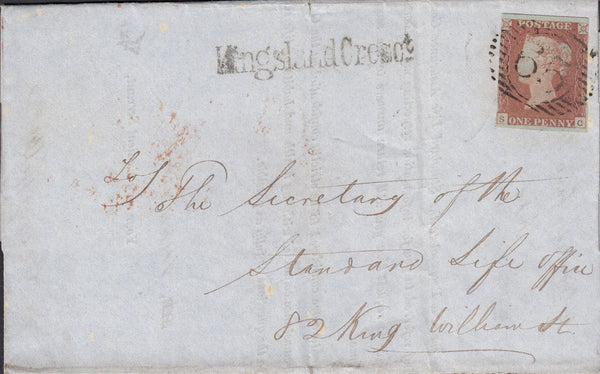 Kingsland Cresct
POSTAGE
S C
ONE PENNY
The Secretary of the
Standard Life Office
82 King William St.